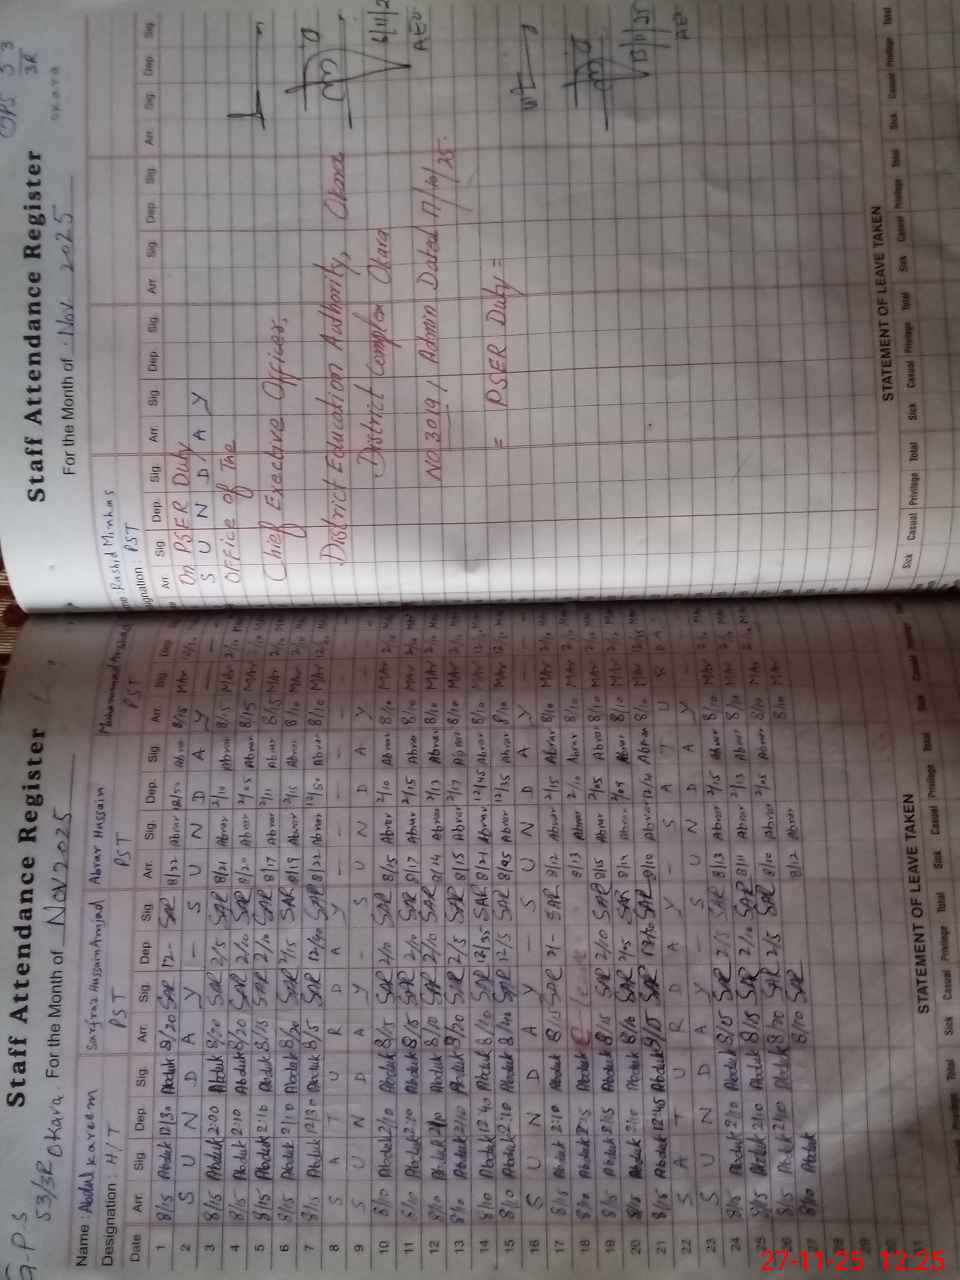 G.P.S
53/3R Okara.
Staff Attendance Register
For the Month of Nov 2025
Name : Abdul Kareem Sarfraz Hussain Amjad Abrar Hussain Muhammad Arshad
Designation : H/T PST PST PST
Date Arr. Sig Dep Sig. Arr. Sig. Dep Sig Arr. Sig. Dep. Sig. Arr. Sig. Dep
1 8/15 Abduk 12/30 Abduk 8/20 SAR 12- SAR 8/22 Abrar 12/50 Abrar 8/15 MAr
2 S U N D A Y - S U N D A Y
3 8/15 Abduk 2:00 Abduk 8/20 SAR 2/5 SAR 8/21 Abrar 2/10 Abrar 8/15 MAr 2/10
4 8/15 Abduk 2:10 Abduk 8/20 SAR 2/10 SAR 8/20 Abrar 2/25 Abrar 8/15 MAr 2/10
5 8/15 Abduk 2:10 Abduk 8/15 SAR 2/10 SAR 8/17 Abrar 2/11 Abrar 8/15 MAr 2/10
6 8/15 Abduk 2/10 Abduk 8/20 SAR 2/5 SAR 8/19 Abrar 2/15 Abrar 8/10 MAr 2/10
7 8/15 Abduk 12/30 Abduk 8/15 SAR 12/40 SAR 8/22 Abrar 12/50 Abrar 8/10 MAr 12/10
8 S A T U R D A Y - - - - - -
9 S U N D A Y - S U N D A Y
10 8/10 Abduk 2/10 Abduk 8/15 SAR 2/10 SAR 8/15 Abrar 2/10 Abrar 8/10 MAr 2/10
11 8/10 Abduk 2:20 Abduk 8/15 SAR 2/10 SAR 8/17 Abrar 2/15 Abrar 8/10 MAr 2/10
12 8/10 Abduk 2/10 Abduk 8/10 SAR 2/10 SAR 8/14 Abrar 2/13 Abrar 8/10 MAr 2/10
13 8/10 Abduk 2/10 Abduk 8/20 SAR 2/5 SAR 8/15 Abrar 2/17 Abrar 8/10 MAr 2/10
14 8/10 Abduk 12:40 Abduk 8/10 SAR 12/35 SAR 8/21 Abrar 12/45 Abrar 8/10 MAr 12/10
15 8/10 Abduk 2:10 Abduk 8/40 SAR 12/5 SAR 8/25 Abrar 12/35 Abrar 8/10 MAr 12/10
16 S U N D A Y - S U N D A Y
17 8/15 Abduk 2:10 Abduk 8/15 SAR 2/- SAR 8/12 Abrar 2/15 Abrar 8/10 MAr 2/10
18 8/10 Abduk 2:15 Abduk C-leave 8/13 Abrar 2/10 Abrar 8/10 MAr 2/10
19 8/15 Abduk 2:15 Abduk 8/15 SAR 2/10 SAR 8/15 Abrar 2/25 Abrar 8/10 MAr 2/10
20 8/15 Abduk 2/10 Abduk 8/10 SAR 2/5 SAR 8/13 Abrar 2/09 Abrar 8/10 MAr 2/10
21 8/15 Abduk 12:45 Abduk 9/15 SAR SAR 8/10 Abrar 12/20 Abrar 8/10 MAr 12/35
22 S A T U R D A Y - S A T U R D A
23 S U N D A Y - S U N D A Y -
24 8/15 Abduk 2/10 Abduk 8/15 SAR 2/5 SAR 8/13 Abrar 2/15 Abrar 8/10 MAr 2/10
25 8/15 Abduk 2/10 Abduk 8/15 SAR 2/10 SAR 8/11 Abrar 2/13 Abrar 8/10 MAr 2/10
26 8/15 Abduk 2/10 Abduk 8/20 SAR 2/5 SAR 8/10 Abrar 2/25 Abrar 8/10 MAr
27 8/10 Abduk 8/10 SAR 8/12 Abrar 8/10 MAr
28
29
30
31
STATEMENT OF LEAVE TAKEN
Total Sick Casual Privilege Total Sick Casual Privilege Total Sick Casual
GPS 53
3R
Okara
Staff Attendance Register
For the Month of Nov 2025
Rashid Minhas
Designation : PST
Arr. Sig Dep. Sig. Arr. Sig Dep. Sig. Arr. Sig Dep. Sig. Arr. Sig Dep. Sig.
On PSER Duty
S U N D A Y
Office of The
Chief Execcive Officer,
District Education Authority, Okara
District Complex Okara
NO.3019/ Admin Dated 17/10/25.
= PSER Duty =
6/11/25
AEO
13/11/25
AEO
STATEMENT OF LEAVE TAKEN
Sick Casual Privilege Total Sick Casual Privilege Total Sick Casual Privilege Total Sick Casual Privilege Total
27-11-25 12:25